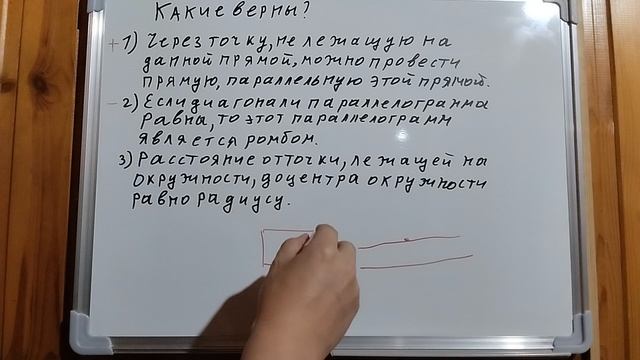 Какие верны?
+ 1) Через точку, не лежащую на
данной прямой, можно провести
прямую, параллельную этой прямой.
- 2) Если диагонали параллелограмма
равны, то этот параллелограмм
является ромбом.
3) Расстояние от точки, лежащей на
окружности, до центра окружности
равно радиусу.